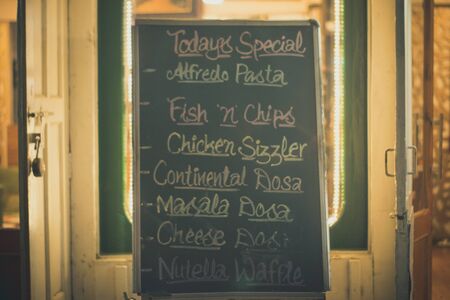 Todays Special
Alfredo Pasta
Fish 'n' Chips
Chicken Sizzler
Continental Dosa
Masala Dosa
Cheese Dosa
Nutella Waffle